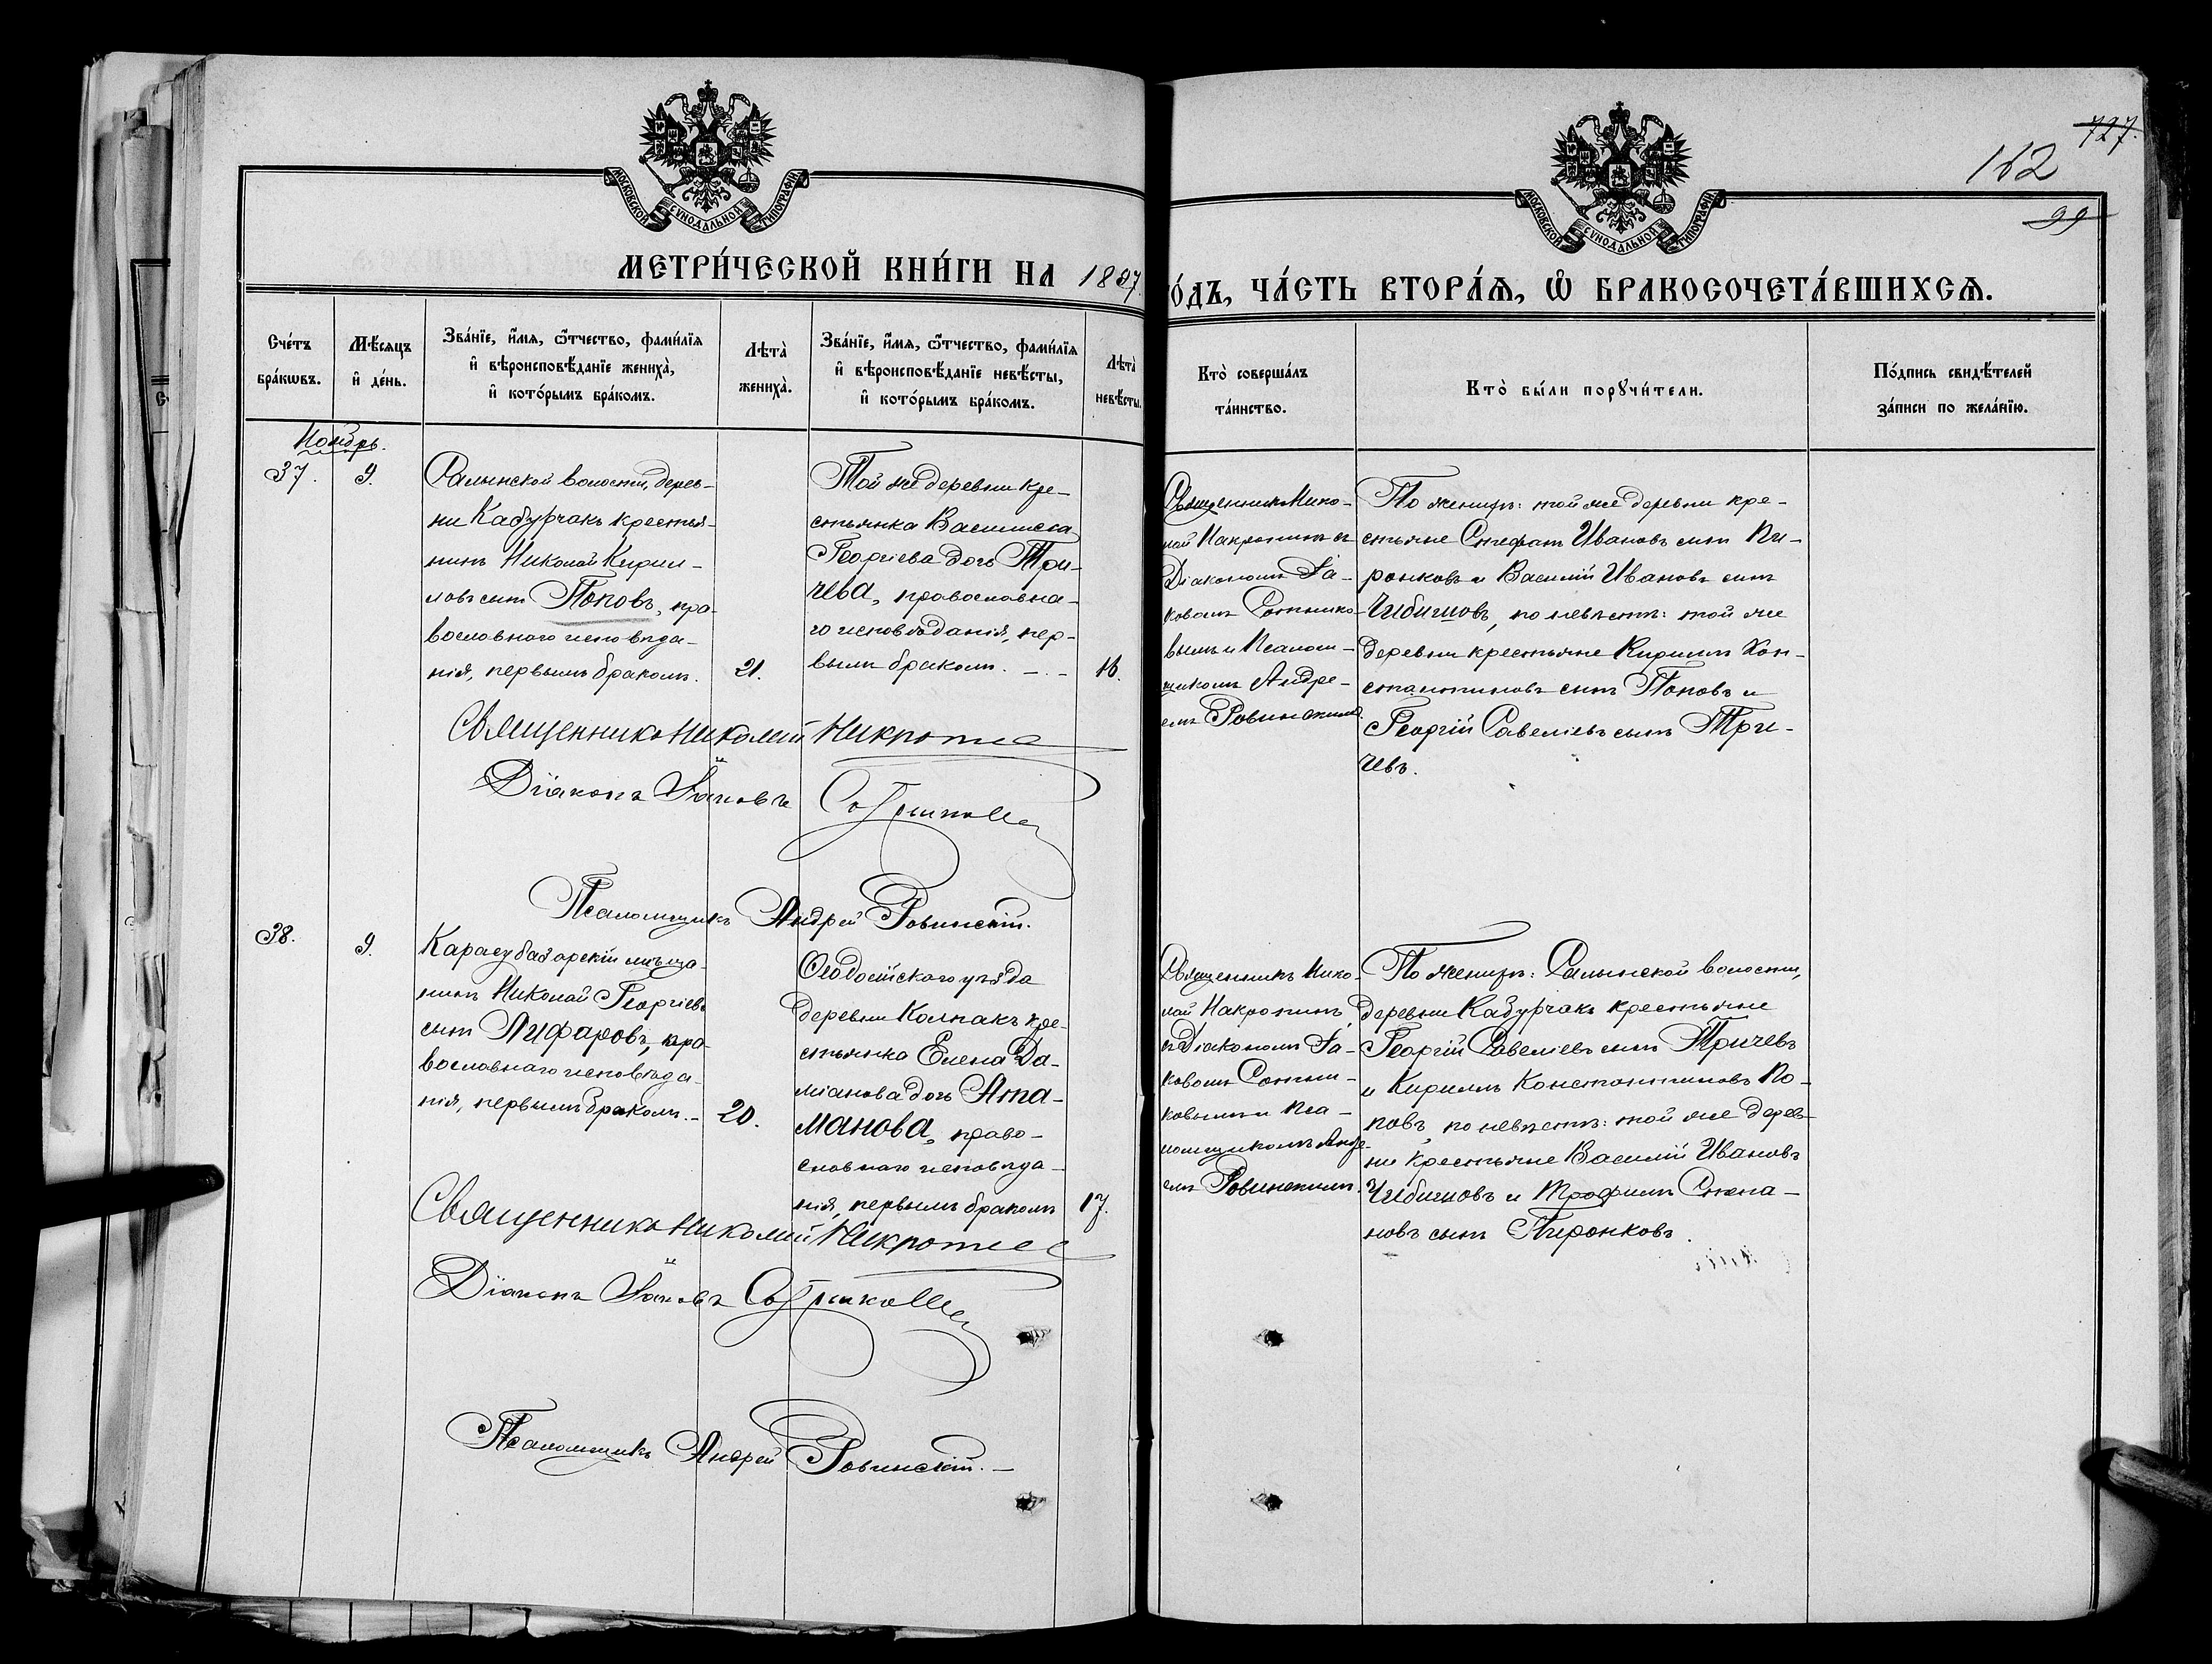 727.
162
99
МОСКОВСКОЙ СѴНОДАЛЬНОЙ ТИПОГРАФІИ
МОСКОВСКОЙ СѴНОДАЛЬНОЙ ТИПОГРАФІИ
МЕТРИ́ЧЕСКОЙ КНИ́ГИ НА 1897.
О́ДЪ, ЧА́СТЬ ВТОРА́Ѧ, Ѡ҆ БРАКОСОЧЕТА́ВШИХСѦ.
Сче́тъ
бра́кѡвъ.
Мѣ́сяцъ
и҆ де́нь.
Зва́нїе, и҆́мя, ѻ҆́тчество, фами́лїя
и҆ вѣроисповѣ́данїе жениха̀,
и҆ кото́рымъ бра́комъ.
Лѣта̀
жениха̀.
Зва́нїе, и҆́мя, ѻ҆́тчество, фами́лїя
и҆ вѣроисповѣ́данїе невѣ́сты,
и҆ кото́рымъ бра́комъ.
Лѣта̀
невѣ́сты.
Кто̀ соверша́лъ
та́инство.
Кто̀ бы́ли порꙋчи́тели.
По́дпись свидѣ́телей
за́писи по жела́нїю.
Ноябрь.
37.
9.
Салынской волости, дерев-
ни Кабурчакъ крестья-
нинъ Николай Кирил-
ловъ сынъ Поповъ, пра-
вославнаго исповѣда-
нія, первымъ бракомъ.
21.
Той же деревни кре-
стьянка Василисса
Георгіева дочь Три-
чева, православна-
го исповѣданія, пер-
вымъ бракомъ. – . –
16.
Священникъ Нико-
лай Макротинъ съ
Діакономъ Іа-
ковомъ Сотнико-
вымъ и Псалом-
щикомъ Андре-
емъ Ровинскимъ.
По женихѣ: той же деревни кре-
стьяне Стефанъ Ивановъ сынъ Пи-
ронковъ и Василій Ивановъ сынъ
Чибишовъ, по невѣстѣ: той же
деревни крестьяне Кириллъ Кон-
стантиновъ сынъ Поповъ и
Георгій Савеліевъ сынъ Три-
чевъ.
Священникъ Николай
Діаконъ Іаковъ Сотниковъ
Псаломщикъ Андрей Ровинскій.
38.
9.
Карасубазарскій мѣща-
нинъ Николай Георгіевъ
сынъ Лифаровъ, пра-
вославнаго исповѣда-
нія, первымъ бракомъ. –
20.
Ѳеодосійскаго уѣзда
деревни Колпакъ кре-
стьянка Елена Да-
міанова дочь Ата-
манова, право-
славнаго исповѣда-
нія, первымъ бракомъ
17.
Священникъ Нико-
лай Макротинъ,
съ Діакономъ Іа-
ковомъ Сотни-
ковымъ и Пса-
ломщикомъ Андре-
емъ Ровинскимъ.
По женихѣ: Салынской волости,
деревни Кабурчакъ крестьяне
Георгій Савеліевъ сынъ Тричевъ
и Кириллъ Константиновъ По-
повъ, по невѣстѣ: той же дерев-
ни крестьяне Василій Ивановъ
Чибишовъ и Трофимъ Степа-
новъ сынъ Пиронковъ.
Священникъ Николай
Діаконъ Іаковъ Сотниковъ
Псаломщикъ Андрей Ровинскій. –